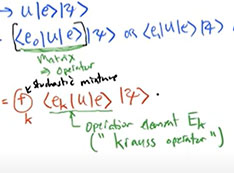 → U|e⟩|ψ⟩
→ ⟨e₀|U|e⟩|ψ⟩ or ⟨e₁|U|e⟩|ψ⟩
matrix
→ operator
stochastic mixture
= (f) ⟨eₖ|U|e⟩ |ψ⟩ .
k
Operation element Eₖ
("krauss operator")